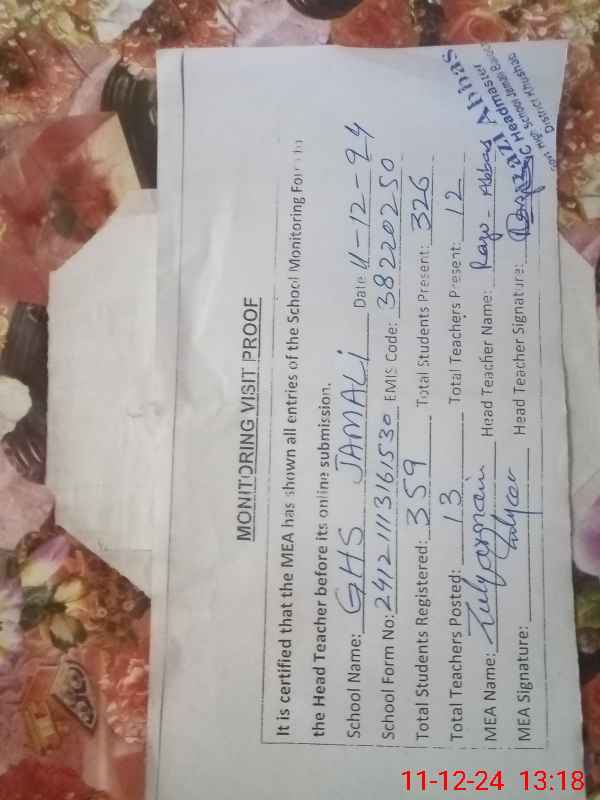 MONITORING VISIT PROOF
It is certified that the MEA has shown all entries of the School Monitoring Form to
the Head Teacher before its online submission.
School Name: GHS JAMALI Date: 11-12-24
School Form No: 24121113161530 EMIS Code: 38220250
Total Students Registered: 359 Total Students Present: 326
Total Teachers Posted: 13 Total Teachers Present: 12
MEA Name: Head Teacher Name: Raza-Abbas
MEA Signature: Head Teacher Signature:
Abbas
Headmaster
Govt. High School Jamali
District Khushab
11-12-24 13:18